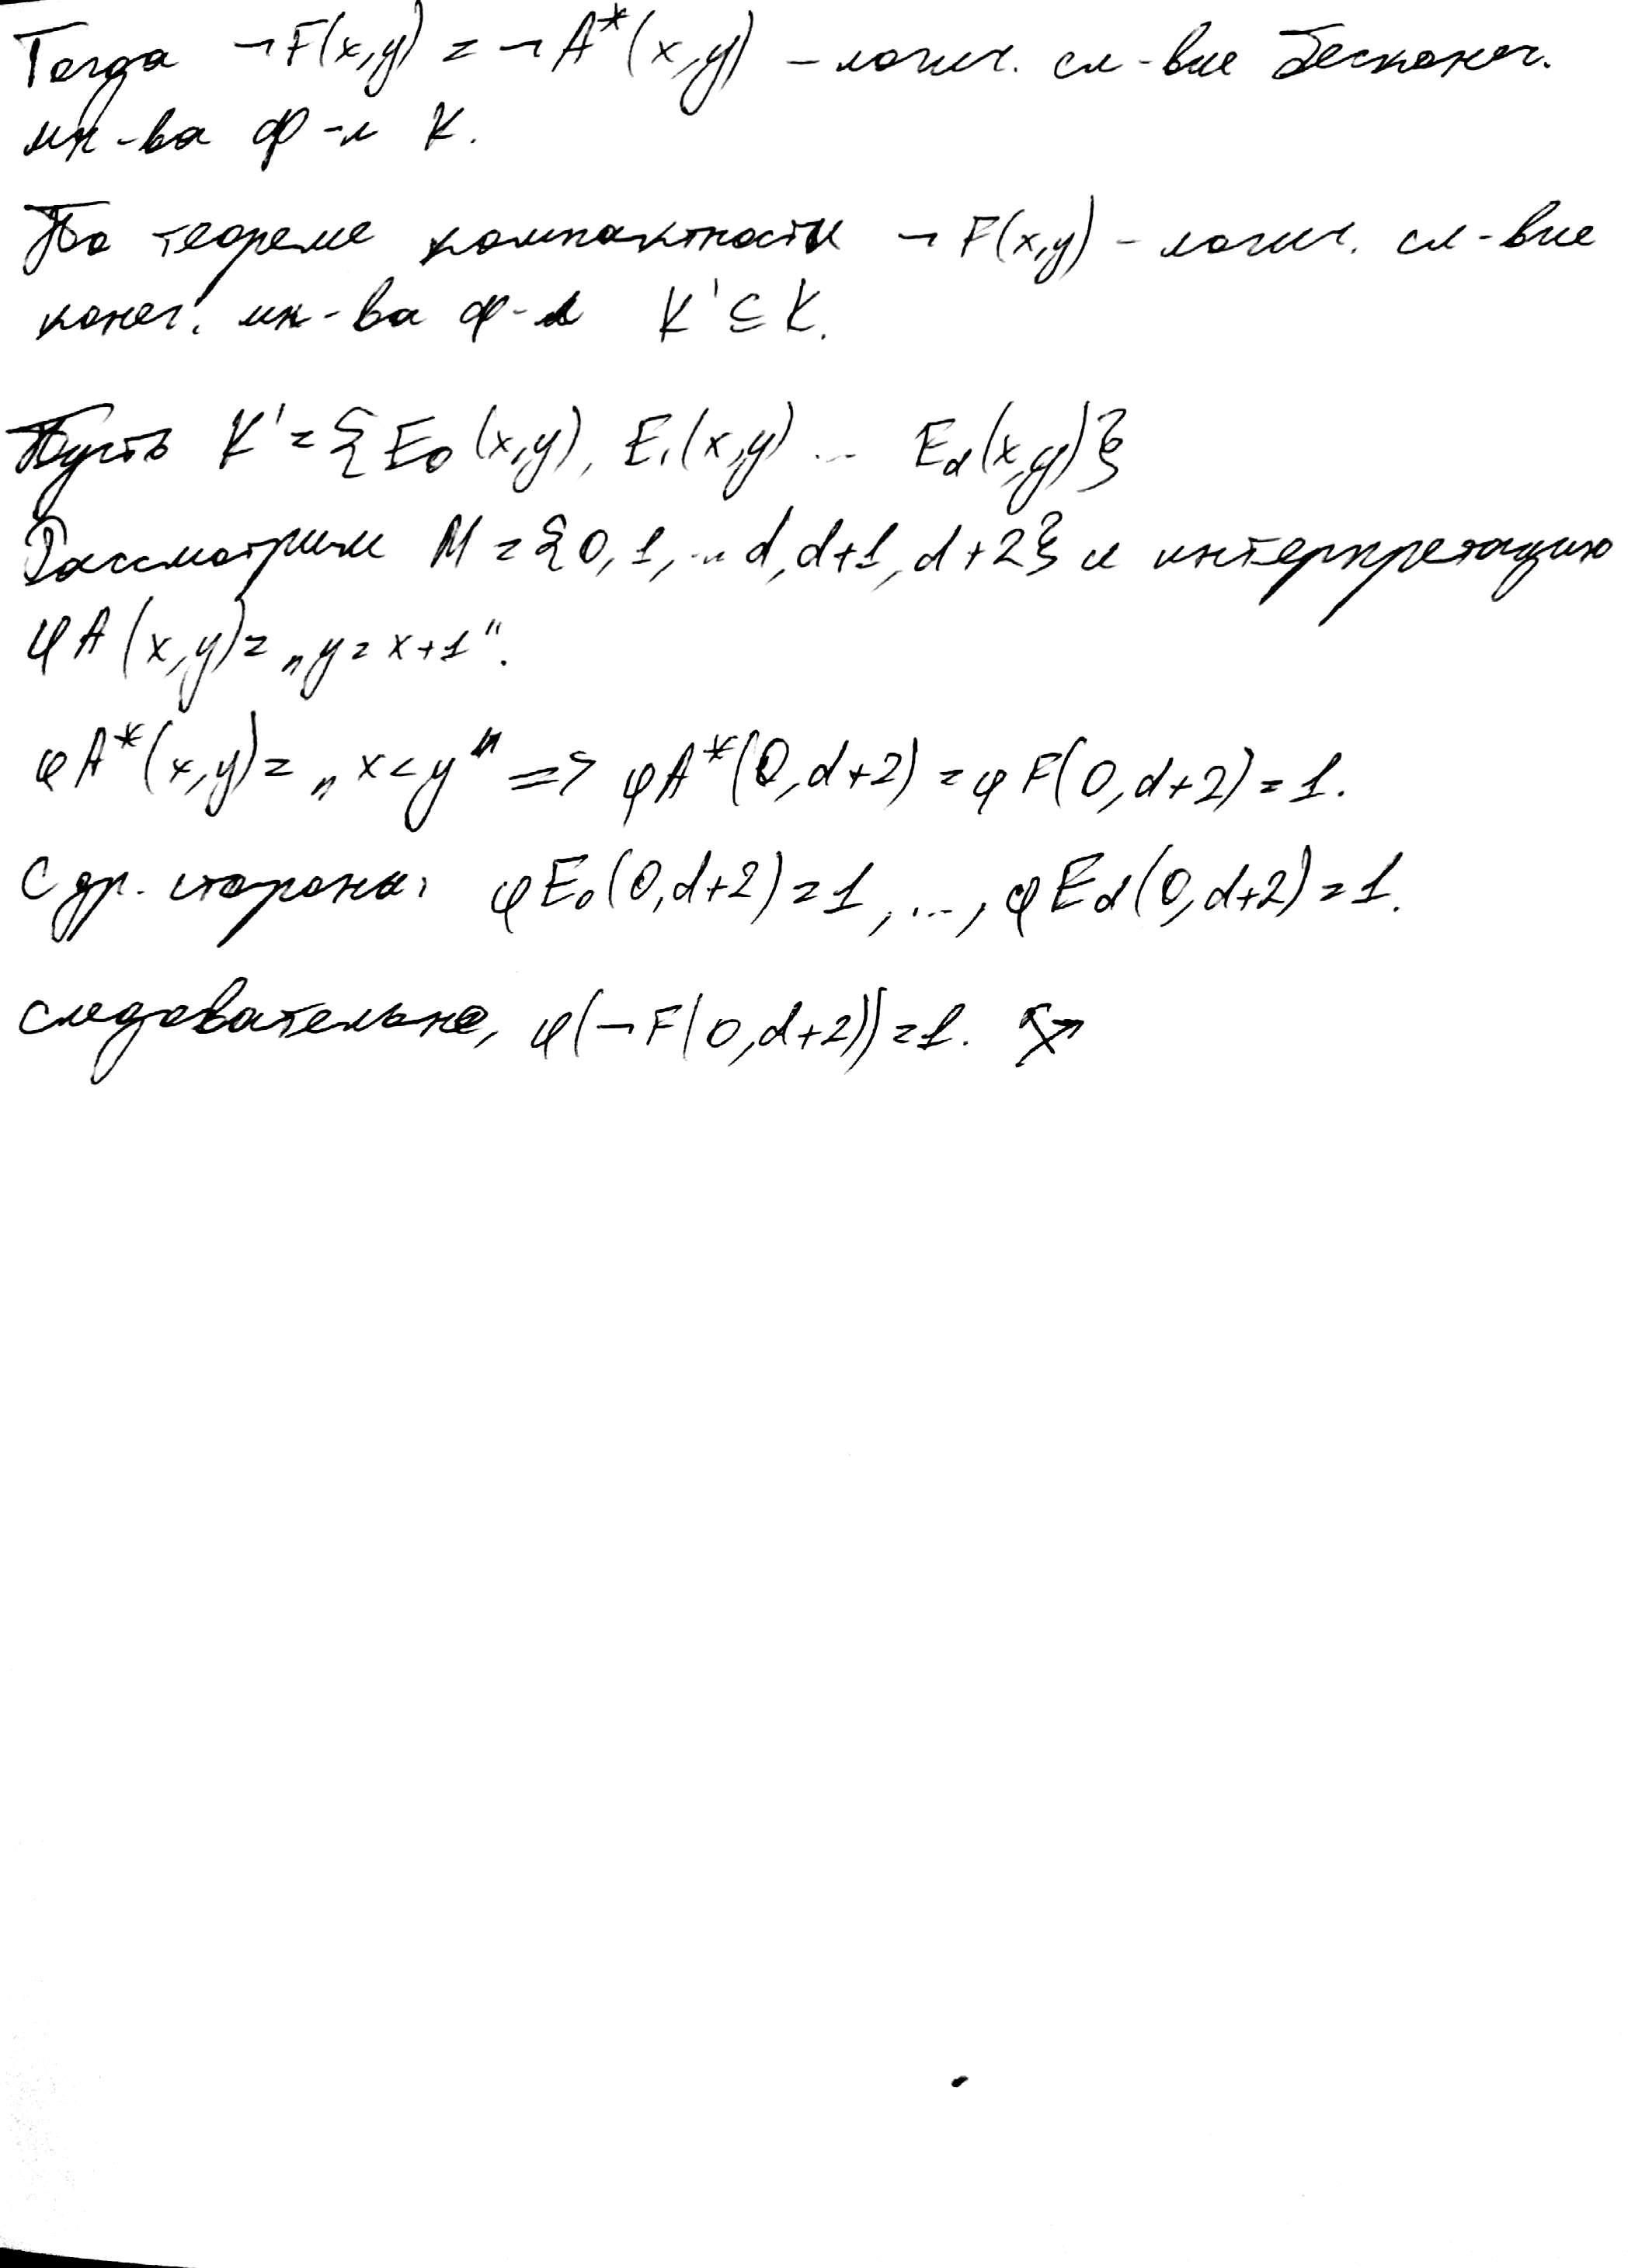 Тогда ¬F(x,y) = ¬A*(x,y) – логич. сл-вие бесконеч.
мн-ва ф-л K.
По теореме компактности ¬F(x,y) – логич. сл-вие
конеч. мн-ва ф-л K' ⊆ K.
Пусть K' = {E₀(x,y), E₁(x,y) ... E_d(x,y)}
Рассмотрим M = {0, 1, ... d, d+1, d+2} и интерпретацию
φA(x,y) = „y = x+1“.
φA*(x,y) = „x < y“ => φA*(0, d+2) = φF(0, d+2) = 1.
С др. стороны: φE₀(0, d+2) = 1, ..., φE_d(0, d+2) = 1.
следовательно, φ(¬F(0, d+2)) = 1.